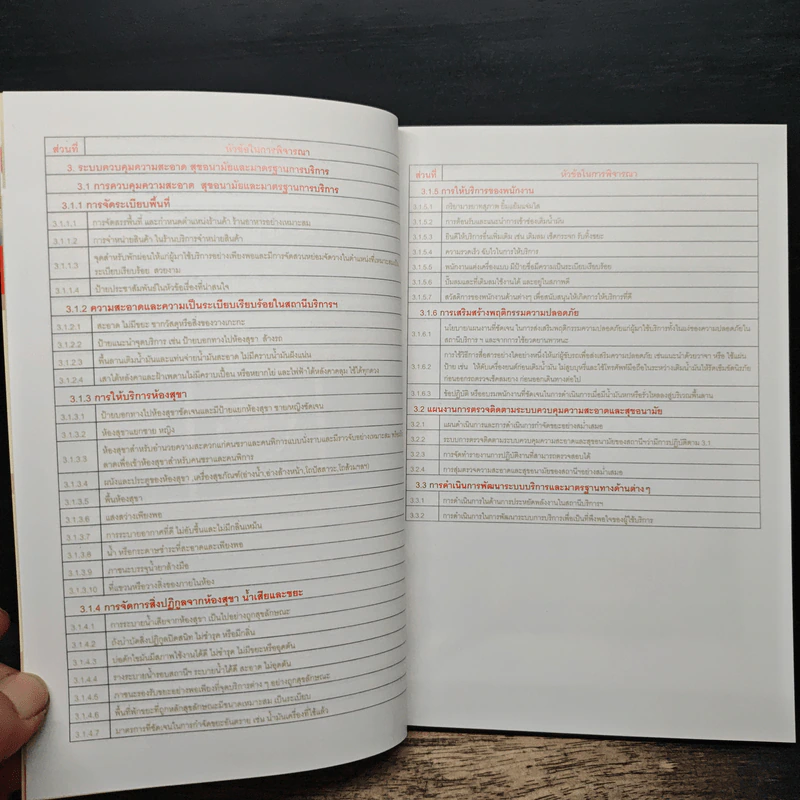 ส่วนที่ หัวข้อในการพิจารณา
3. ระบบควบคุมความสะอาด สุขอนามัยและมาตรฐานการบริการ
3.1 การควบคุมความสะอาด สุขอนามัยและมาตรฐานการบริการ
3.1.1 การจัดระเบียบพื้นที่
3.1.1.1 การจัดสรรพื้นที่ และกำหนดตำแหน่งร้านค้า ร้านอาหารอย่างเหมาะสม
3.1.1.2 การจำหน่ายสินค้า ในร้านบริการจำหน่ายสินค้า
3.1.1.3 จุดสำหรับพักผ่อนให้แก่ผู้มาใช้บริการอย่างเพียงพอและมีการจัดสวนหย่อมจัดวางในตำแหน่งที่เหมาะสมเป็น
ระเบียบเรียบร้อย สวยงาม
3.1.1.4 ป้ายประชาสัมพันธ์ในหัวข้อเรื่องที่น่าสนใจ
3.1.2 ความสะอาดและความเป็นระเบียบเรียบร้อยในสถานีบริการฯ
3.1.2.1 สะอาด ไม่มีขยะ ซากวัสดุหรือสิ่งของวางเกะกะ
3.1.2.2 ป้ายแนะนำจุดบริการ เช่น ป้ายบอกทางไปห้องสุขา ล้างรถ
3.1.2.3 พื้นลานเติมน้ำมันและแท่นจ่ายน้ำมันสะอาด ไม่มีคราบน้ำมันฝังแน่น
3.1.2.4 เสาใต้หลังคาและฝ้าเพดานไม่มีคราบเปื้อน หรือหยากไย่ และไฟฟ้าใต้หลังคาคลุม ใช้ได้ทุกดวง
3.1.3 การให้บริการห้องสุขา
3.1.3.1 ป้ายบอกทางไปห้องสุขาชัดเจนและมีป้ายแยกห้องสุขา ชายหญิงชัดเจน
3.1.3.2 ห้องสุขาแยกชาย หญิง
3.1.3.3 ห้องสุขาสำหรับอำนวยความสะดวกแก่คนชราและคนพิการแบบนั่งราบและมีราวจับอย่างเหมาะสม พร้อมทาง
ลาดเพื่อเข้าห้องสุขาสำหรับคนชราและคนพิการ
3.1.3.4 ผนังและประตูของห้องสุขา ,เครื่องสุขภัณฑ์(อ่างน้ำ,อ่างล้างหน้า,โถปัสสาวะ,โถส้วมฯลฯ)
3.1.3.5 พื้นห้องสุขา
3.1.3.6 แสงสว่างเพียงพอ
3.1.3.7 การระบายอากาศที่ดี ไม่อับชื้นและไม่มีกลิ่นเหม็น
3.1.3.8 น้ำ หรือกระดาษชำระที่สะอาดและเพียงพอ
3.1.3.9 ภาชนะบรรจุน้ำยาล้างมือ
3.1.3.10 ที่แขวนหรือวางสิ่งของภายในห้อง
3.1.4 การจัดการสิ่งปฏิกูลจากห้องสุขา น้ำเสียและขยะ
3.1.4.1 การระบายน้ำเสียจากห้องสุขา เป็นไปอย่างถูกสุขลักษณะ
3.1.4.2 ถังบำบัดสิ่งปฏิกูลปิดสนิท ไม่ชำรุด หรือมีกลิ่น
3.1.4.3 บ่อดักไขมันมีสภาพใช้งานได้ดี ไม่ชำรุด ไม่มีขยะหรืออุดตัน
3.1.4.4 รางระบายน้ำรอบสถานีฯ ระบายน้ำได้ดี สะอาด ไม่อุดตัน
3.1.4.5 ภาชนะรองรับขยะอย่างพอเพียงที่จุดบริการต่าง ๆ อย่างถูกสุขลักษณะ
3.1.4.6 พื้นที่พักขยะที่ถูกหลักสุขลักษณะมีขนาดเหมาะสม เป็นระเบียบ
3.1.4.7 มาตรการที่ชัดเจนในการกำจัดขยะอันตราย เช่น น้ำมันเครื่องที่ใช้แล้ว
ส่วนที่ หัวข้อในการพิจารณา
3.1.5 การให้บริการของพนักงาน
3.1.5.1 กริยามารยาทสุภาพ ยิ้มแย้มแจ่มใส
3.1.5.2 การต้อนรับและแนะนำการเข้าช่องเติมน้ำมัน
3.1.5.3 ยินดีให้บริการอื่นเพิ่มเติม เช่น เติมลม เช็ดกระจก รับทิ้งขยะ
3.1.5.4 ความรวดเร็ว ฉับไวในการให้บริการ
3.1.5.5 พนักงานแต่งเครื่องแบบ มีป้ายชื่อมีความเป็นระเบียบเรียบร้อย
3.1.5.6 ปั๊มลมและที่เติมลมใช้งานได้ และอยู่ในสภาพดี
3.1.5.7 สวัสดิการของพนักงานด้านต่างๆ เพื่อสนับสนุนให้เกิดการให้บริการที่ดี
3.1.6 การเสริมสร้างพฤติกรรมความปลอดภัย
3.1.6.1 นโยบาย/แผนงานที่ชัดเจน ในการส่งเสริมพฤติกรรมความปลอดภัยแก่ผู้มาใช้บริการทั้งในแง่ของความปลอดภัยใน
สถานีบริการฯ และจากการใช้ยวดยานพาหนะ
3.1.6.2 การใช้วิธีการสื่อสารอย่างใดอย่างหนึ่งให้แก่ผู้ขับรถเพื่อส่งเสริมความปลอดภัย เช่นแนะนำด้วยวาจาฯ หรือ ใช้แผ่น
ป้าย เช่น ให้ดับเครื่องยนต์ก่อนเติมน้ำมัน ไม่สูบบุหรี่และใช้โทรศัพท์มือถือในระหว่างเติมน้ำมันให้รัดเข็มขัดนิรภัย
ก่อนออกรถตรวจเช็คลมยาง ก่อนออกเดินทางต่อไป
3.1.6.3 ข้อปฏิบัติ หรืออบรมพนักงานที่ชัดเจนในการดำเนินการเมื่อมีน้ำมันหกหรือรั่วไหลลงสู่บริเวณพื้นลาน
3.2 แผนงานการตรวจติดตามระบบควบคุมความสะอาดและสุขอนามัย
3.2.1 แผนดำเนินการและการดำเนินการกำจัดขยะอย่างสม่ำเสมอ
3.2.2 ระบบการตรวจติดตามความสะอาดและสุขอนามัยของสถานีฯว่ามีการปฏิบัติตาม 3.1
3.2.3 การจัดทำรายงานการปฏิบัติงานที่สามารถตรวจสอบได้
3.2.4 การสุ่มตรวจความสะอาดและสุขอนามัยของสถานีฯอย่างสม่ำเสมอ
3.3 การดำเนินการพัฒนาระบบบริการและมาตรฐานทางด้านต่างๆ
3.3.1 การดำเนินการในด้านการประหยัดพลังงานในสถานีบริการฯ
3.3.2 การดำเนินการในการพัฒนาระบบการบริการเพื่อเป็นที่พึงพอใจของผู้ใช้บริการ